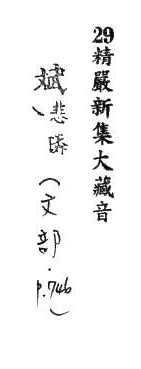 29精嚴新集大藏音
斌、悲（文部．p.746）